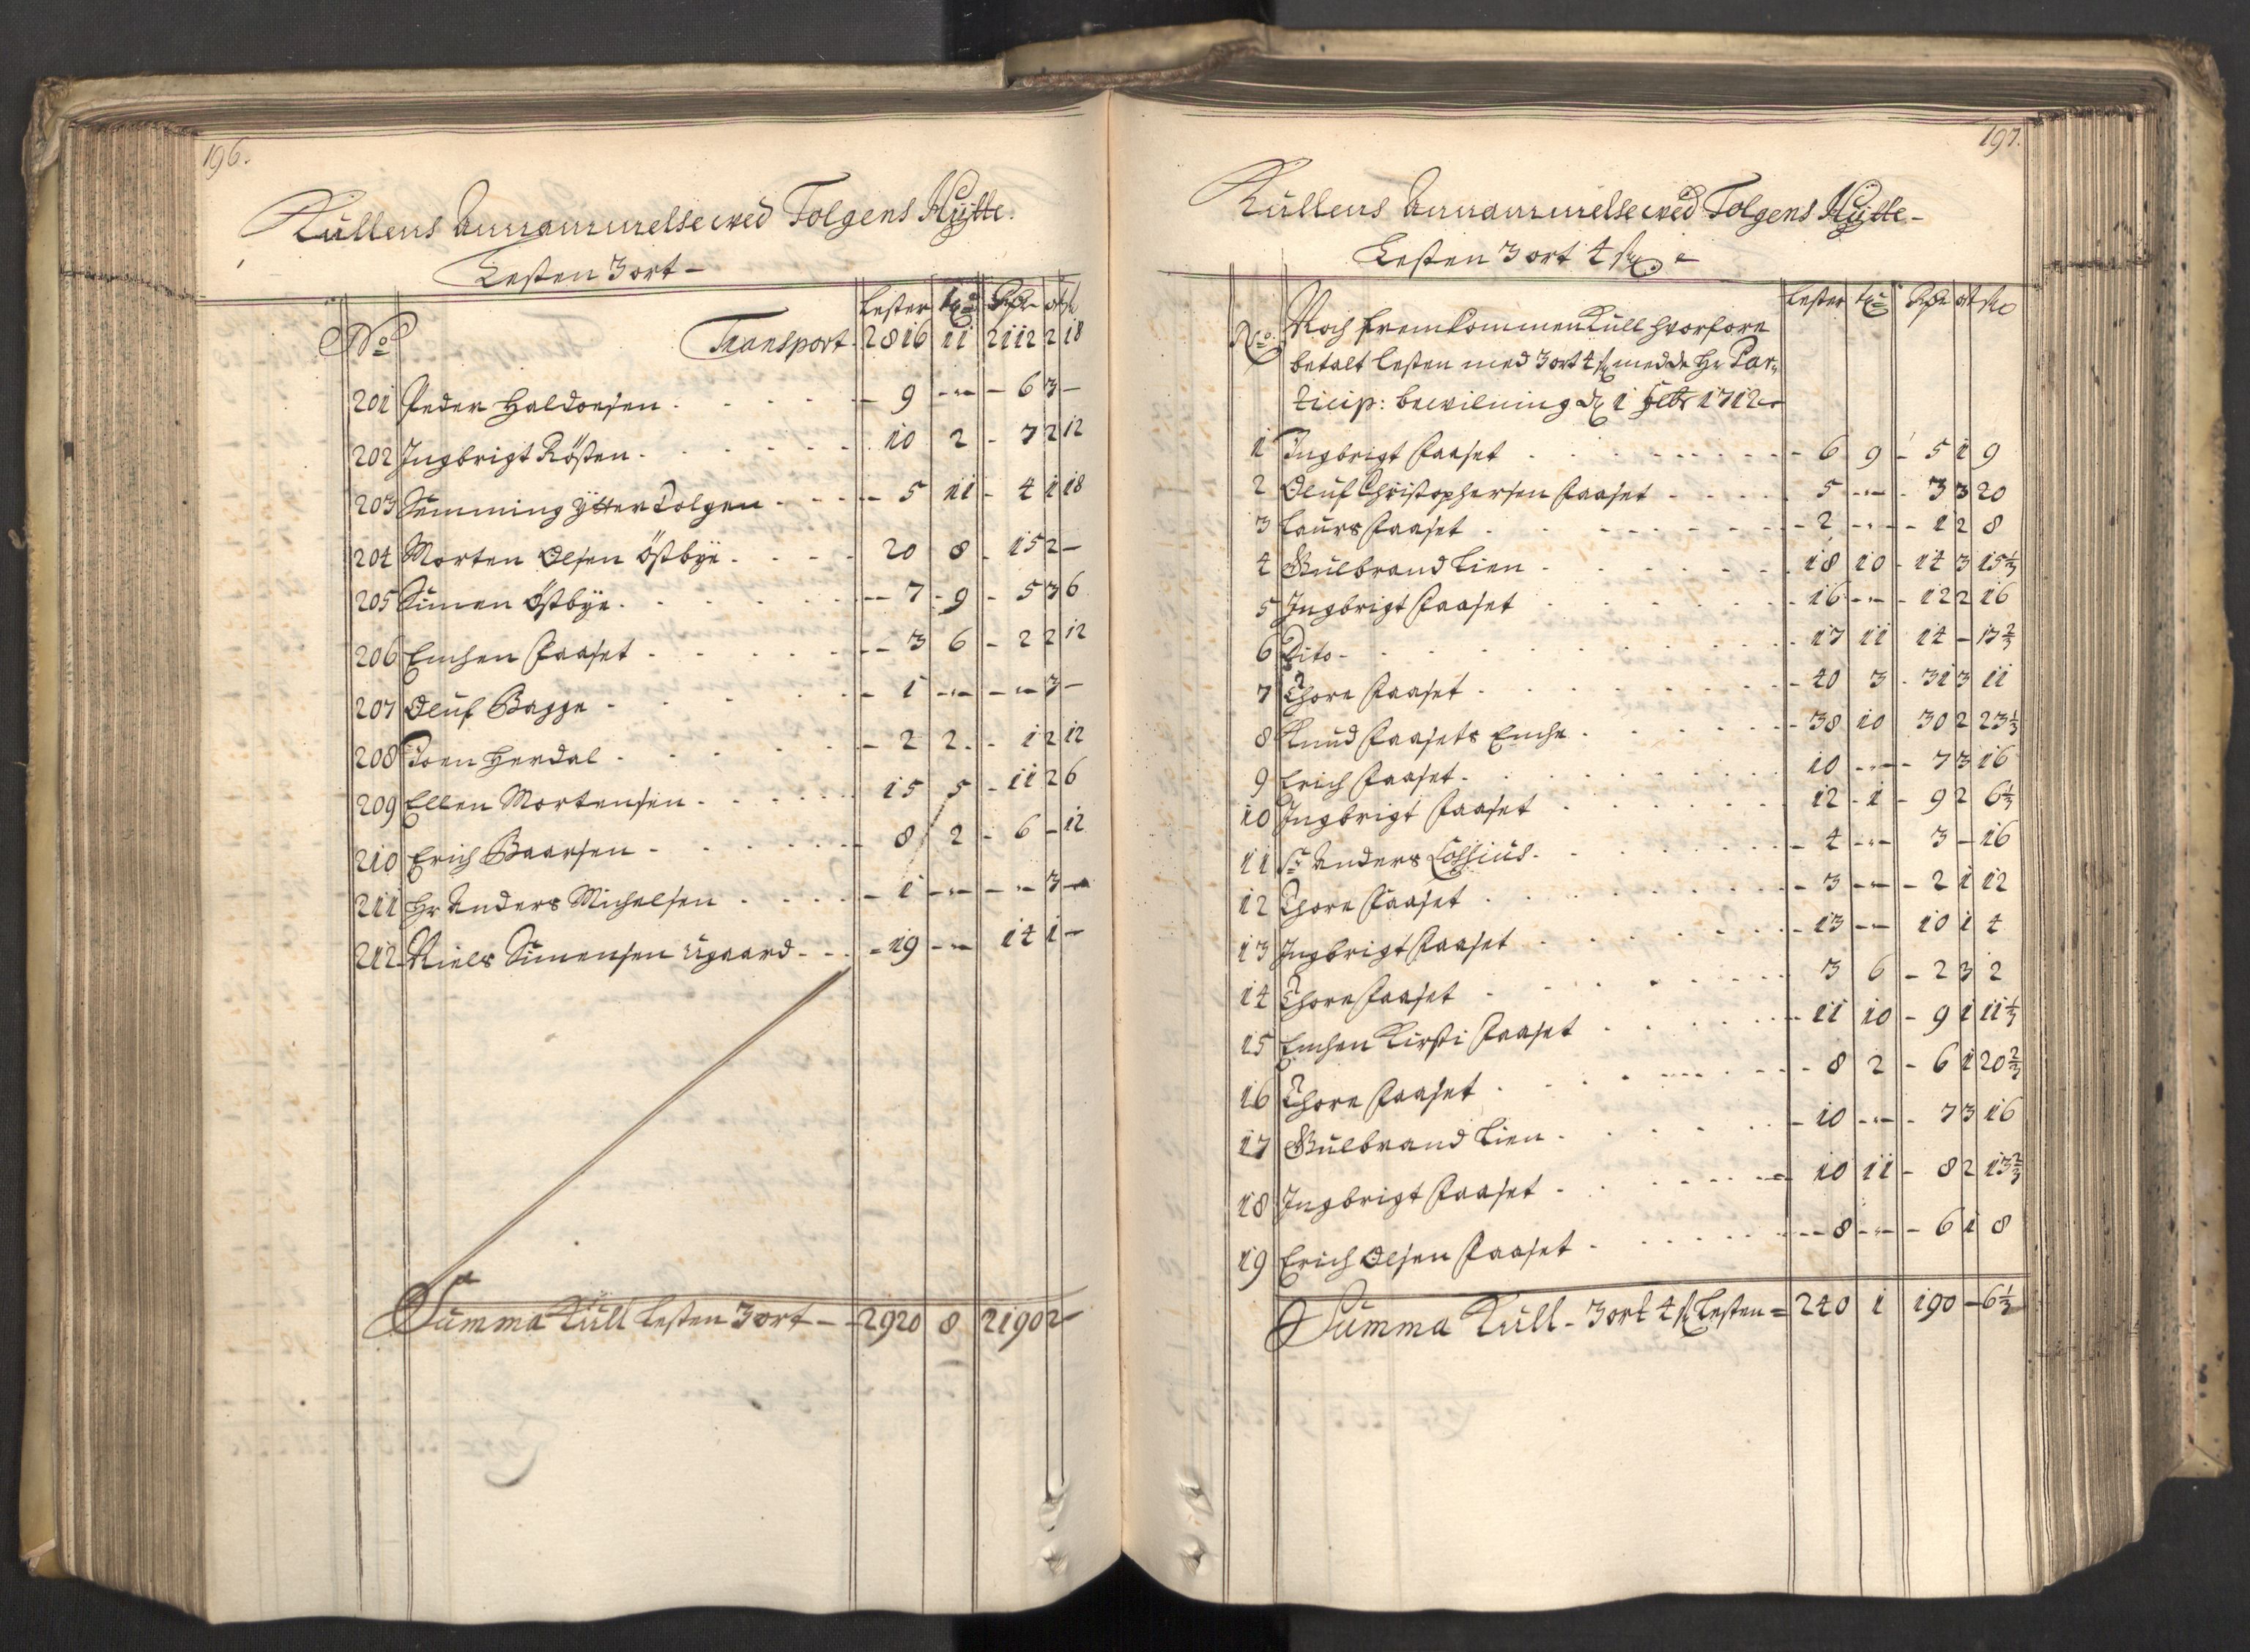 196.
Kullens Annammelse wed Tolgens Hytte.
Lesten 3 ort -
No Lester tr Rdr ort s
Transport 2816 11 2112 2 18
201 Peder Haldorsen - 9 - - 6 3 -
202 Ingbrigt Rösten 10 2 - 7 2 12
203 Semming Ytter Tolgen - 5 11 - 4 1 18
204 Morten Olsen Östbye 20 8 - 15 2 -
205 Simen Östbye - 7 - 9 - 5 3 6
206 Enchen Paaset - 3 6 - 2 2 12
207 Oluf Bagge - 1 - - - 3 -
208 Joen Herdal - 2 2 - 1 2 12
209 Ellen Mortensen 15 5 - 11 2 6
210 Erich Baarsen - 8 2 - 6 - 12
211 Hr Anders Michelsen - 1 - - - 3 -
212 Niels Simensen Ugaard - 19 - - 14 1 -
Summa Kull Lesten 3 ort - 2920 8 2190 2 -
197.
Kullens Annammelse wed Tolgens Hytte -
Lesten 3 ort 4 s
Lester tr Rdr ort s
No Noch fremkommen Kull hvorfore
betalt lesten med 3 ort 4 s med de Hr Par-
ticip: bewilning d 1 Febr 1712
1 Ingbrigt Paaset - 6 9 - 5 1 9
2 Oluf Christophersen Paaset 5 - - 3 3 20
3 Laurs Paaset - 2 - - 1 2 8
4 Gulbrand Lien 18 10 - 14 3 15⅓
5 Ingbrigt Paaset - 16 - - 12 2 16
6 Dito - 17 11 14 - 17⅔
7 Thore Paaset - 40 3 - 31 3 11
8 Knud Paasets Enche - 38 10 30 2 23⅓
9 Erich Paaset 10 - - 7 3 16
10 Ingbrigt Paaset 12 - 1 - 9 2 6⅓
11 Sr Anders Cossius - 4 - - 3 - 16
12 Thore Paaset - 3 - - 2 1 12
13 Ingbrigt Paaset - 13 - - 10 1 4
14 Thore Paaset 3 6 - 2 3 2
15 Enchen Kirsti Paaset - 11 10 - 9 1 11⅓
16 Thore Paaset - 8 2 - 6 1 20⅔
17 Gulbrand Lien - 10 - - 7 3 16
18 Ingbrigt Paaset - 10 11 - 8 2 13⅔
19 Erich Olsen Paaset - 8 - - 6 1 8
Summa Kull - 3 ort 4 s Lesten = 240 1 190 - 6⅓